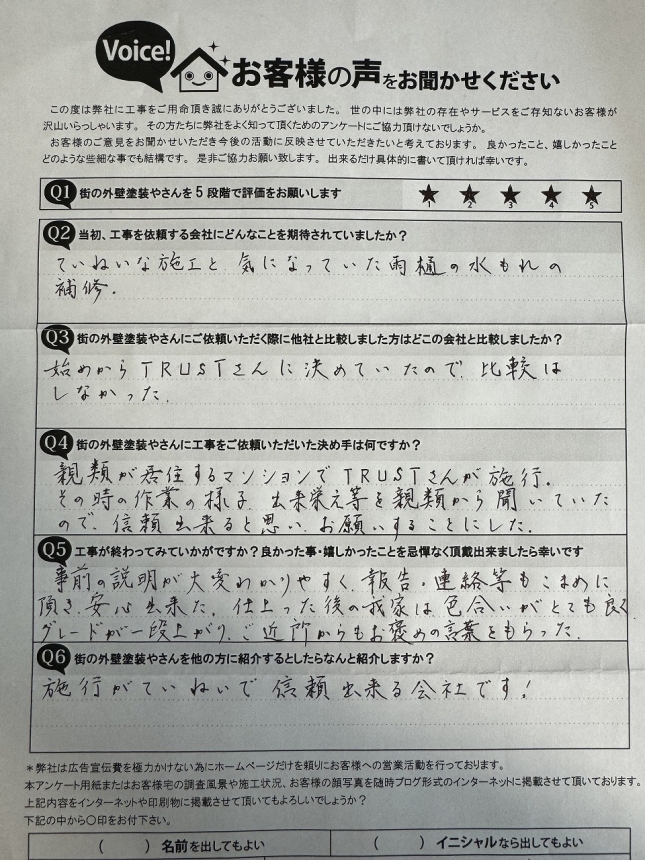 Voice!
お客様の声をお聞かせください
この度は弊社に工事をご用命頂き誠にありがとうございました。 世の中には弊社の存在やサービスをご存知ないお客様が
沢山いらっしゃいます。 その方たちに弊社をよく知って頂くためのアンケートにご協力頂けないでしょうか。
お客様のご意見をお聞かせいただき今後の活動に反映させていただきたいと考えております。 良かったこと、嬉しかったこと
どのような些細な事でも結構です。 是非ご協力お願い致します。 出来るだけ具体的に書いて頂ければ幸いです。
Q1 街の外壁塗装やさんを5段階で評価をお願いします ★ ★ ★ ★ ★
1 2 3 4 5
Q2 当初、工事を依頼する会社にどんなことを期待されていましたか?
ていねいな施工と、気になっていた雨樋の水もれの
補修.
Q3 街の外壁塗装やさんにご依頼いただく際に他社と比較しました方はどこの会社と比較しましたか?
始めからTRUSTさんに決めていたので、比較は
しなかった.
Q4 街の外壁塗装やさんに工事をご依頼いただいた決め手は何ですか?
親類が居住するマンションでTRUSTさんが施行.
その時の作業の様子、出来栄え等を親類から聞いていた
ので、信頼出来ると思い、お願いすることにした.
Q5 工事が終わってみていかがですか?良かった事・嬉しかったことを忌憚なく頂戴出来ましたら幸いです
事前の説明が大変わかりやすく、報告・連絡等もこまめに
頂き、安心出来た. 仕上った後の我家は色合いがとても良く
グレードが一段上がり、ご近所からもお褒めの言葉をもらった.
Q6 街の外壁塗装やさんを他の方に紹介するとしたらなんと紹介しますか?
施行がていねいで信頼出来る会社です!
*弊社は広告宣伝費を極力かけない為にホームページだけを頼りにお客様への営業活動を行っております。
本アンケート用紙またはお客様宅の調査風景や施工状況、お客様の顔写真を随時ブログ形式のインターネットに掲載させて頂いております。
上記内容をインターネットや印刷物に掲載させて頂いてもよろしいでしょうか?
下記の中から○印をお付下さい。
( ) 名前を出してもよい ( ) イニシャルなら出してもよい